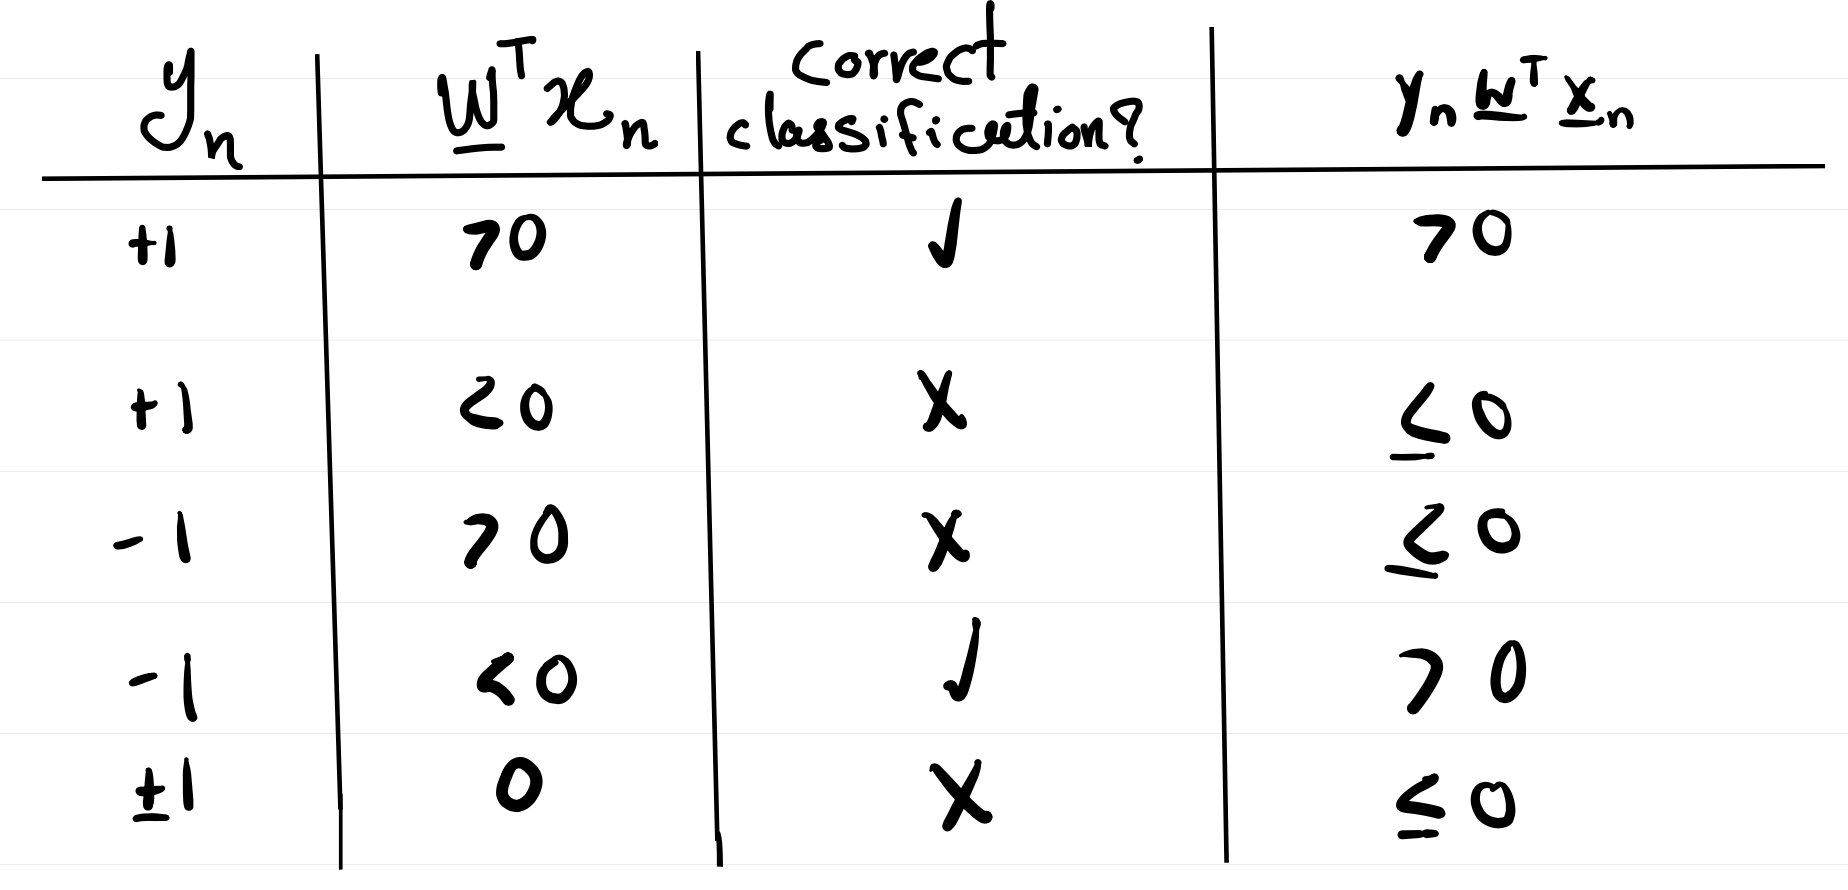 yₙ | w̲ᵀxₙ | correct classification? | yₙ w̲ᵀ x̲ₙ
+1 | >0 | ✓ | >0
+1 | <0 | X | ≤0
-1 | >0 | X | ≤0
-1 | <0 | ✓ | >0
±1 | 0 | X | ≤0